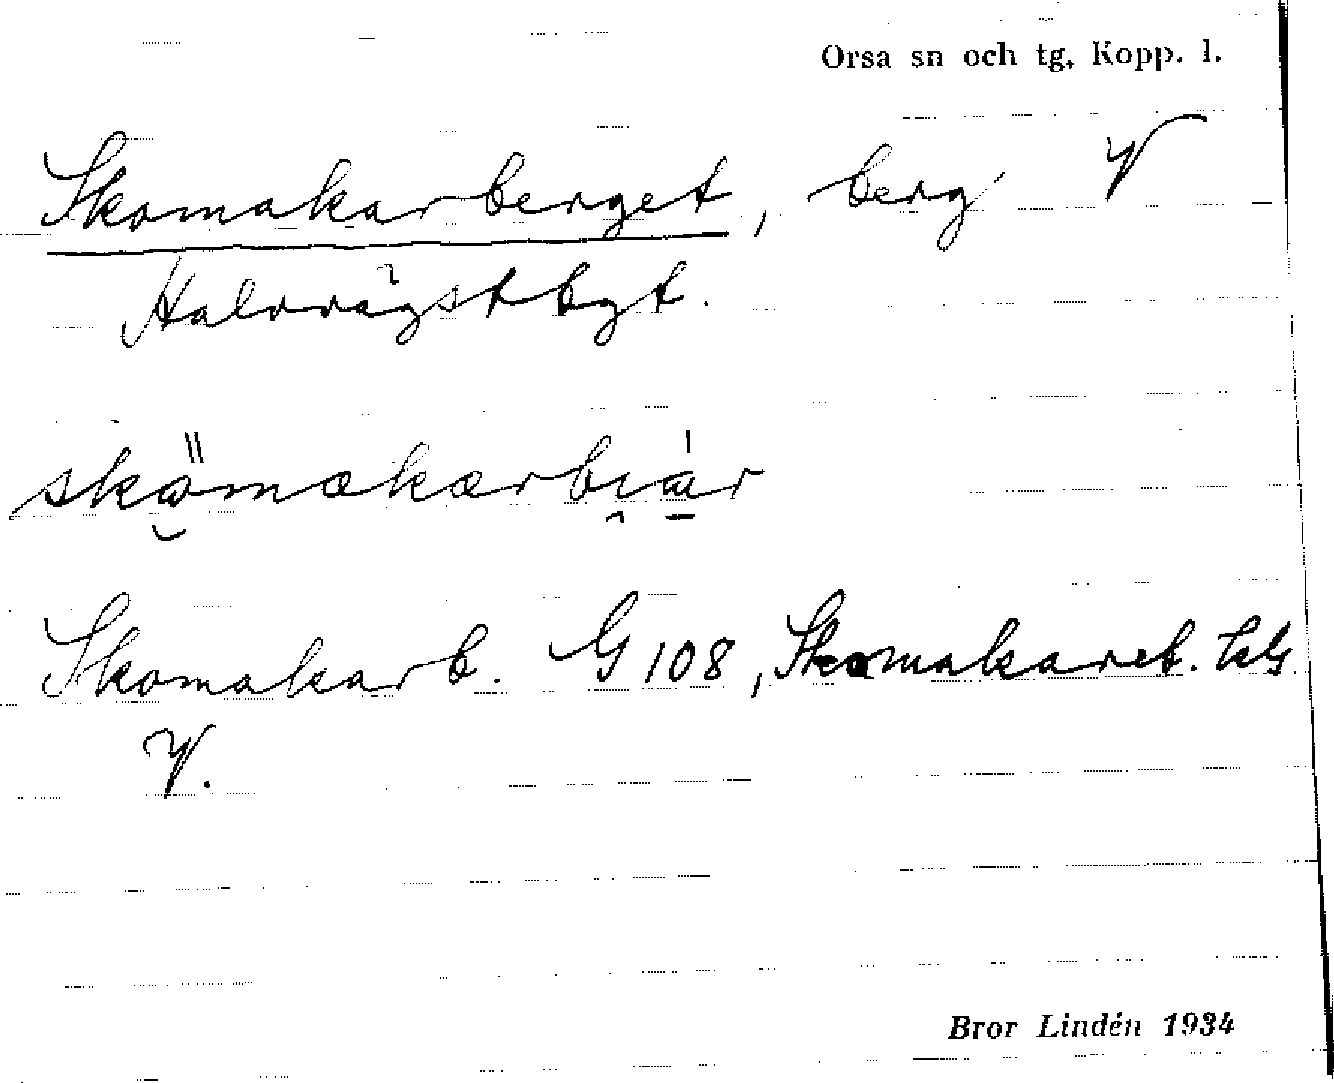 Orsa sn och tg, Kopp. l.
Skomakarberget, berg V
Halvvägstbgt.
skömakarbiár
Skomakarb. G 108, Skomakareb. kls
V.
Bror Lindén 1934